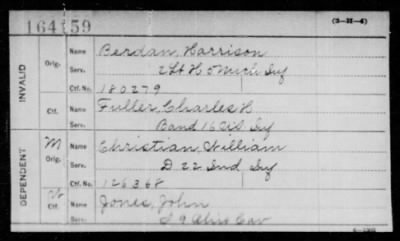 164159 (3-22-4)
INVALID
Orig. Name Berdan, Harrison
Serv. 2 Lt H 5 Mich Inf
Ctf. No. 180279
Ctf. Name Fuller, Charles H
Serv. Band 16 Inf
DEPENDENT
M Orig. Name Christian, William
Serv. D 22 Ind Inf
Ctf. No. 126368
Ctf. Name Jones, John
Serv. 9 Ohio Cav